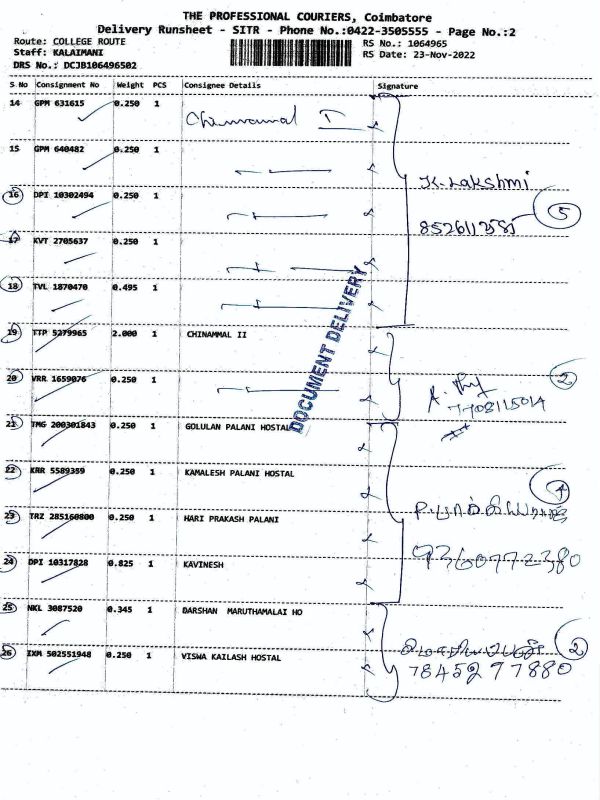 THE PROFESSIONAL COURIERS, Coimbatore
Delivery Runsheet - SITR - Phone No.:0422-3505555 - Page No.:2
Route: COLLEGE ROUTE
Staff: KALAIMANI
DRS No.: DCJB106496502
RS No.: 1064965
RS Date: 23-Nov-2022
S No Consignment No Weight PCS Consignee Details Signature
14 GPM 631615 0.250 1 Chinnamal I
15 GPM 640482 0.250 1
K. Lakshmi
16 DPI 10302494 0.250 1
5
17 KVT 2705637 0.250 1
18 TVL 1870470 0.495 1
19 TTP 5279965 2.000 1 CHINAMMAL II
DOCUMENT DELIVERY
20 VRR 1659076 0.250 1
2
7708115014
21 TMG 200301843 0.250 1 GOLULAN PALANI HOSTAL
22 KRR 5589359 0.250 1 KAMALESH PALANI HOSTAL
4
23 TRZ 285160800 0.250 1 HARI PRAKASH PALANI
9360772380
24 DPI 10317828 0.825 1 KAVINESH
25 NKL 3087520 0.345 1 DARSHAN MARUTHAMALAI HO
2
26 IXM 502551948 0.250 1 VISWA KAILASH HOSTAL
7845297880